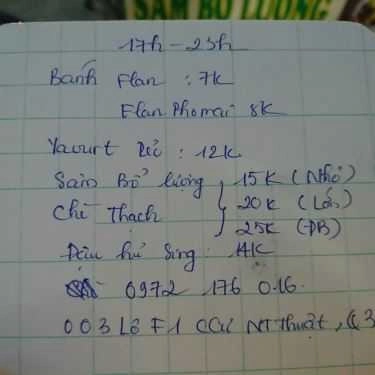 SÂM BỔ LƯỢNG
17h - 23h
Bánh Flan : 7K
Flan Phomai 8K
Yaourt Dẻo : 12K
Sâm Bổ lượng 15K (Nhỏ)
Chè Thạch 20K (Lớn)
25K (ĐB)
Đậu hủ Sing 14K
0972 176 016.
003 Lô F1 CCư NT Thuật, Q3